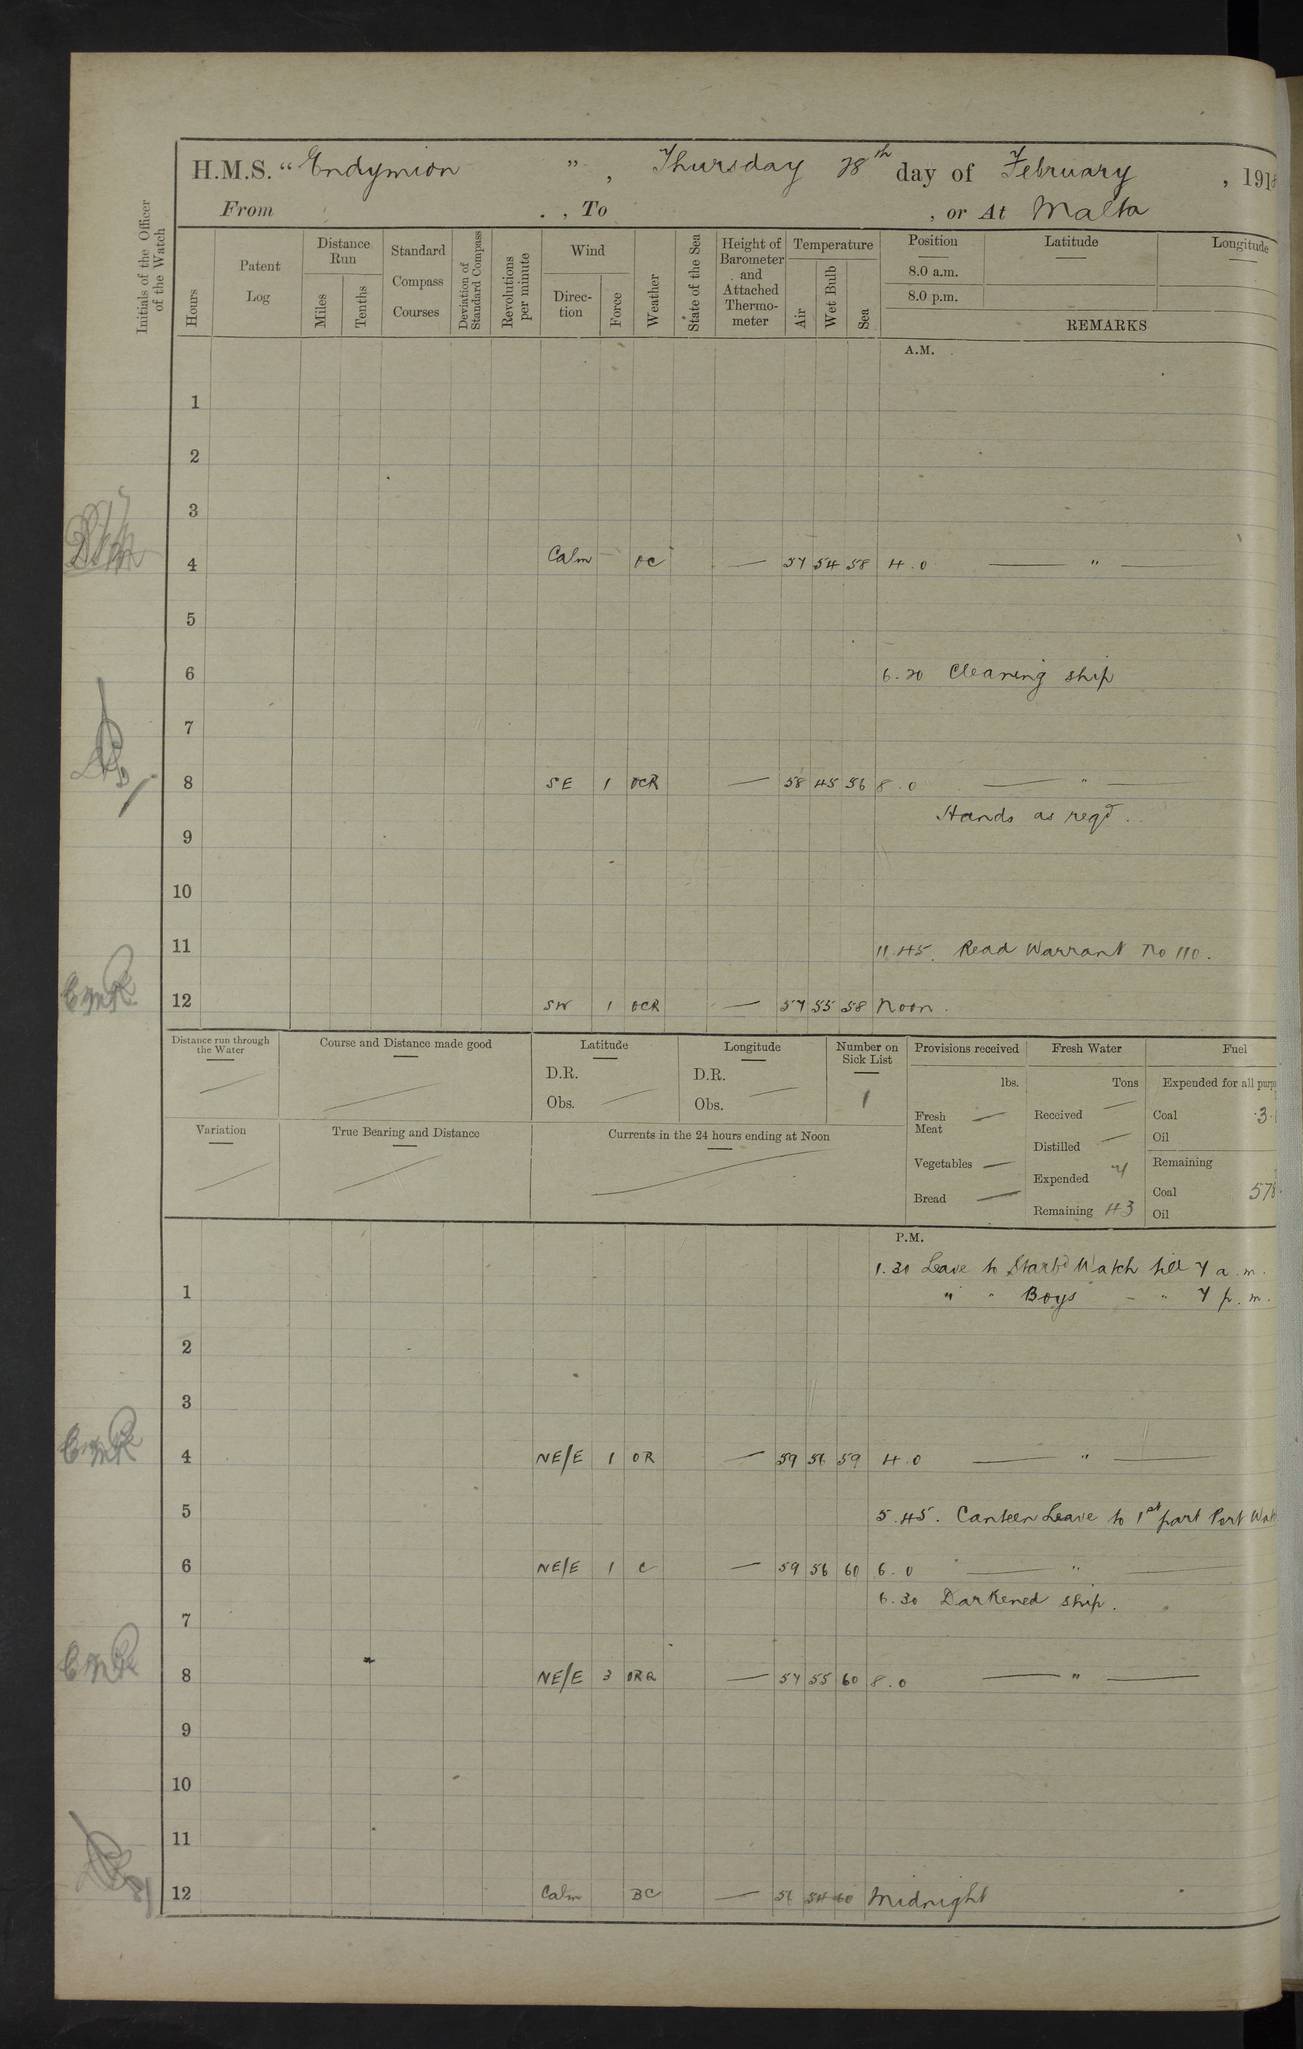 H.M.S. "Endymion", Thursday 28th day of February, 1918
From , To , or At Malta
Initials of the Officer of the Watch
Hours
Patent Log
Distance Run
Miles
Tenths
Standard Compass Courses
Deviation of Standard Compass
Revolutions per minute
Wind
Direc-tion
Force
Weather
State of the Sea
Height of Barometer and Attached Thermo-meter
Temperature
Air
Wet Bulb
Sea
Position Latitude Longitude
8.0 a.m.
8.0 p.m.
REMARKS
A.M.
1
2
3
4 Calm OC — 57 54 58 4.0 — " —
5
6 6.20 Cleaning ship
7
8 SE 1 OCR — 58 45 56 8.0 — " —
Hands as reqd.
9
10
11 11.45. Read Warrant No 110.
12 SW 1 OCR — 57 55 58 Noon.
Distance run through the Water
Course and Distance made good
Latitude
D.R.
Obs.
Longitude
D.R.
Obs.
Number on Sick List
1
Provisions received
lbs.
Fresh Meat —
Vegetables —
Bread —
Fresh Water
Tons
Received —
Distilled —
Expended 7
Remaining 43
Fuel
Expended for all purpo
Coal 3.
Oil
Remaining
Coal 578
Oil
Variation
True Bearing and Distance
Currents in the 24 hours ending at Noon
P.M.
1.30 Leave to Starbd Watch till 7 a.m.
1 " " Boys - " 7 p.m.
2
3
4 NE/E 1 OR — 59 56 59 4.0 — " —
5 5.45. Canteen Leave to 1st part Port Wat
6 NE/E 1 C — 59 56 60 6.0 — " —
6.30 Darkened ship.
7
8 NE/E 3 ORQ — 57 55 60 8.0 — " —
9
10
11
12 Calm BC — 56 54 60 Midnight